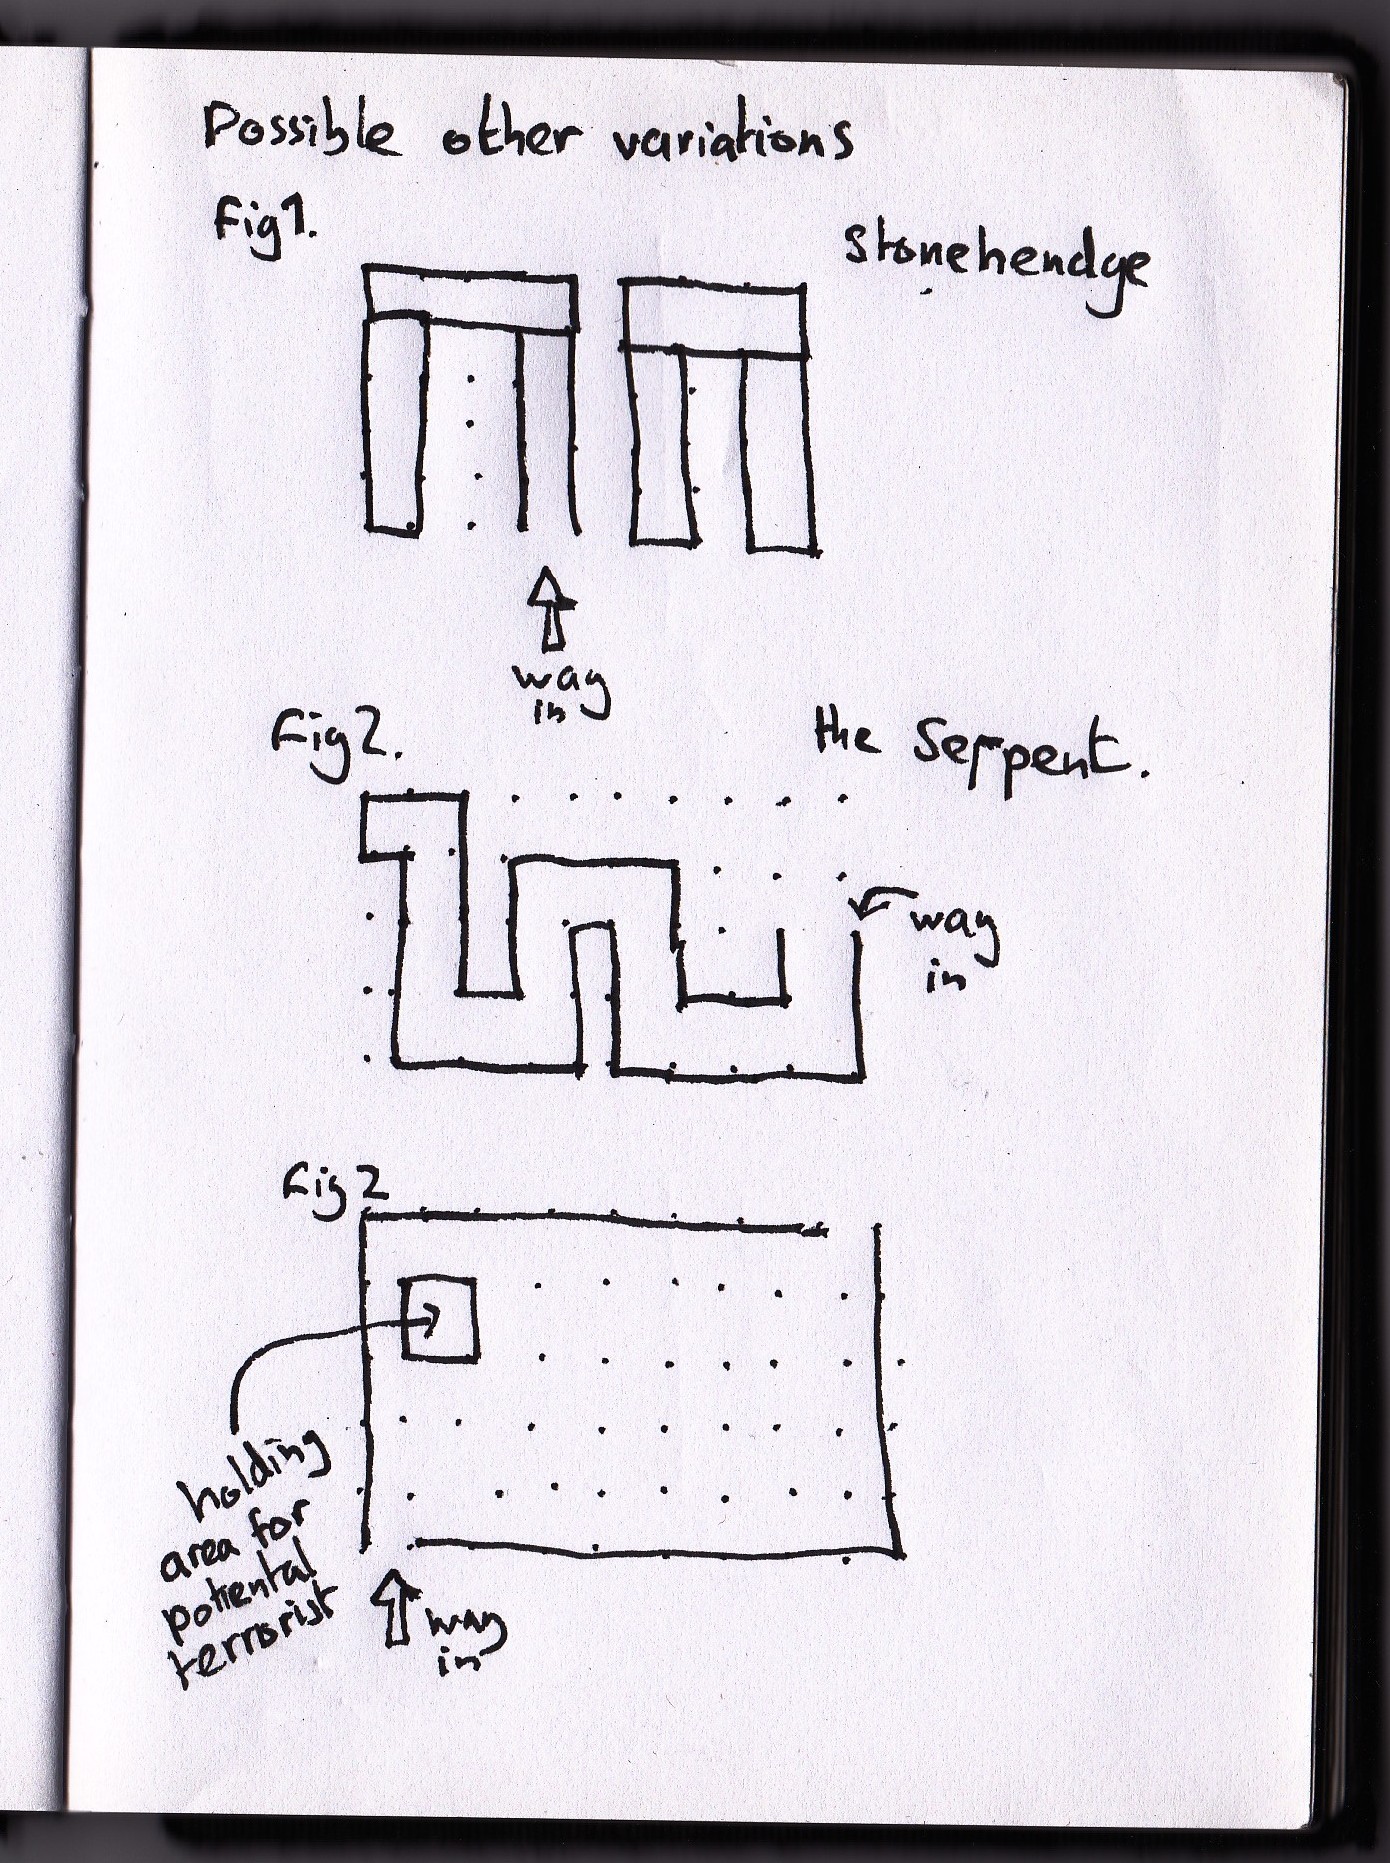 Possible other variations
Fig1.
Stonehendge
way
in
Fig2.
the Serpent.
way
in
Fig2
holding
area for
potiental
terrorist
way
in